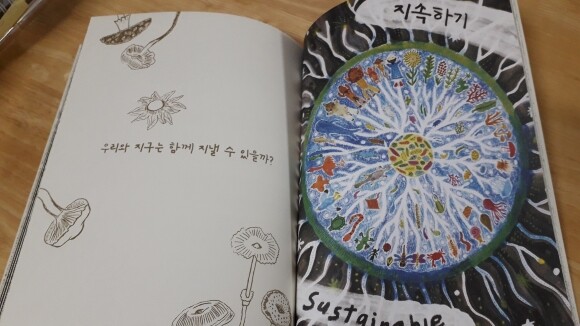 우리와 지구는 함께 지낼 수 있을까?
지속하기
Sustainable